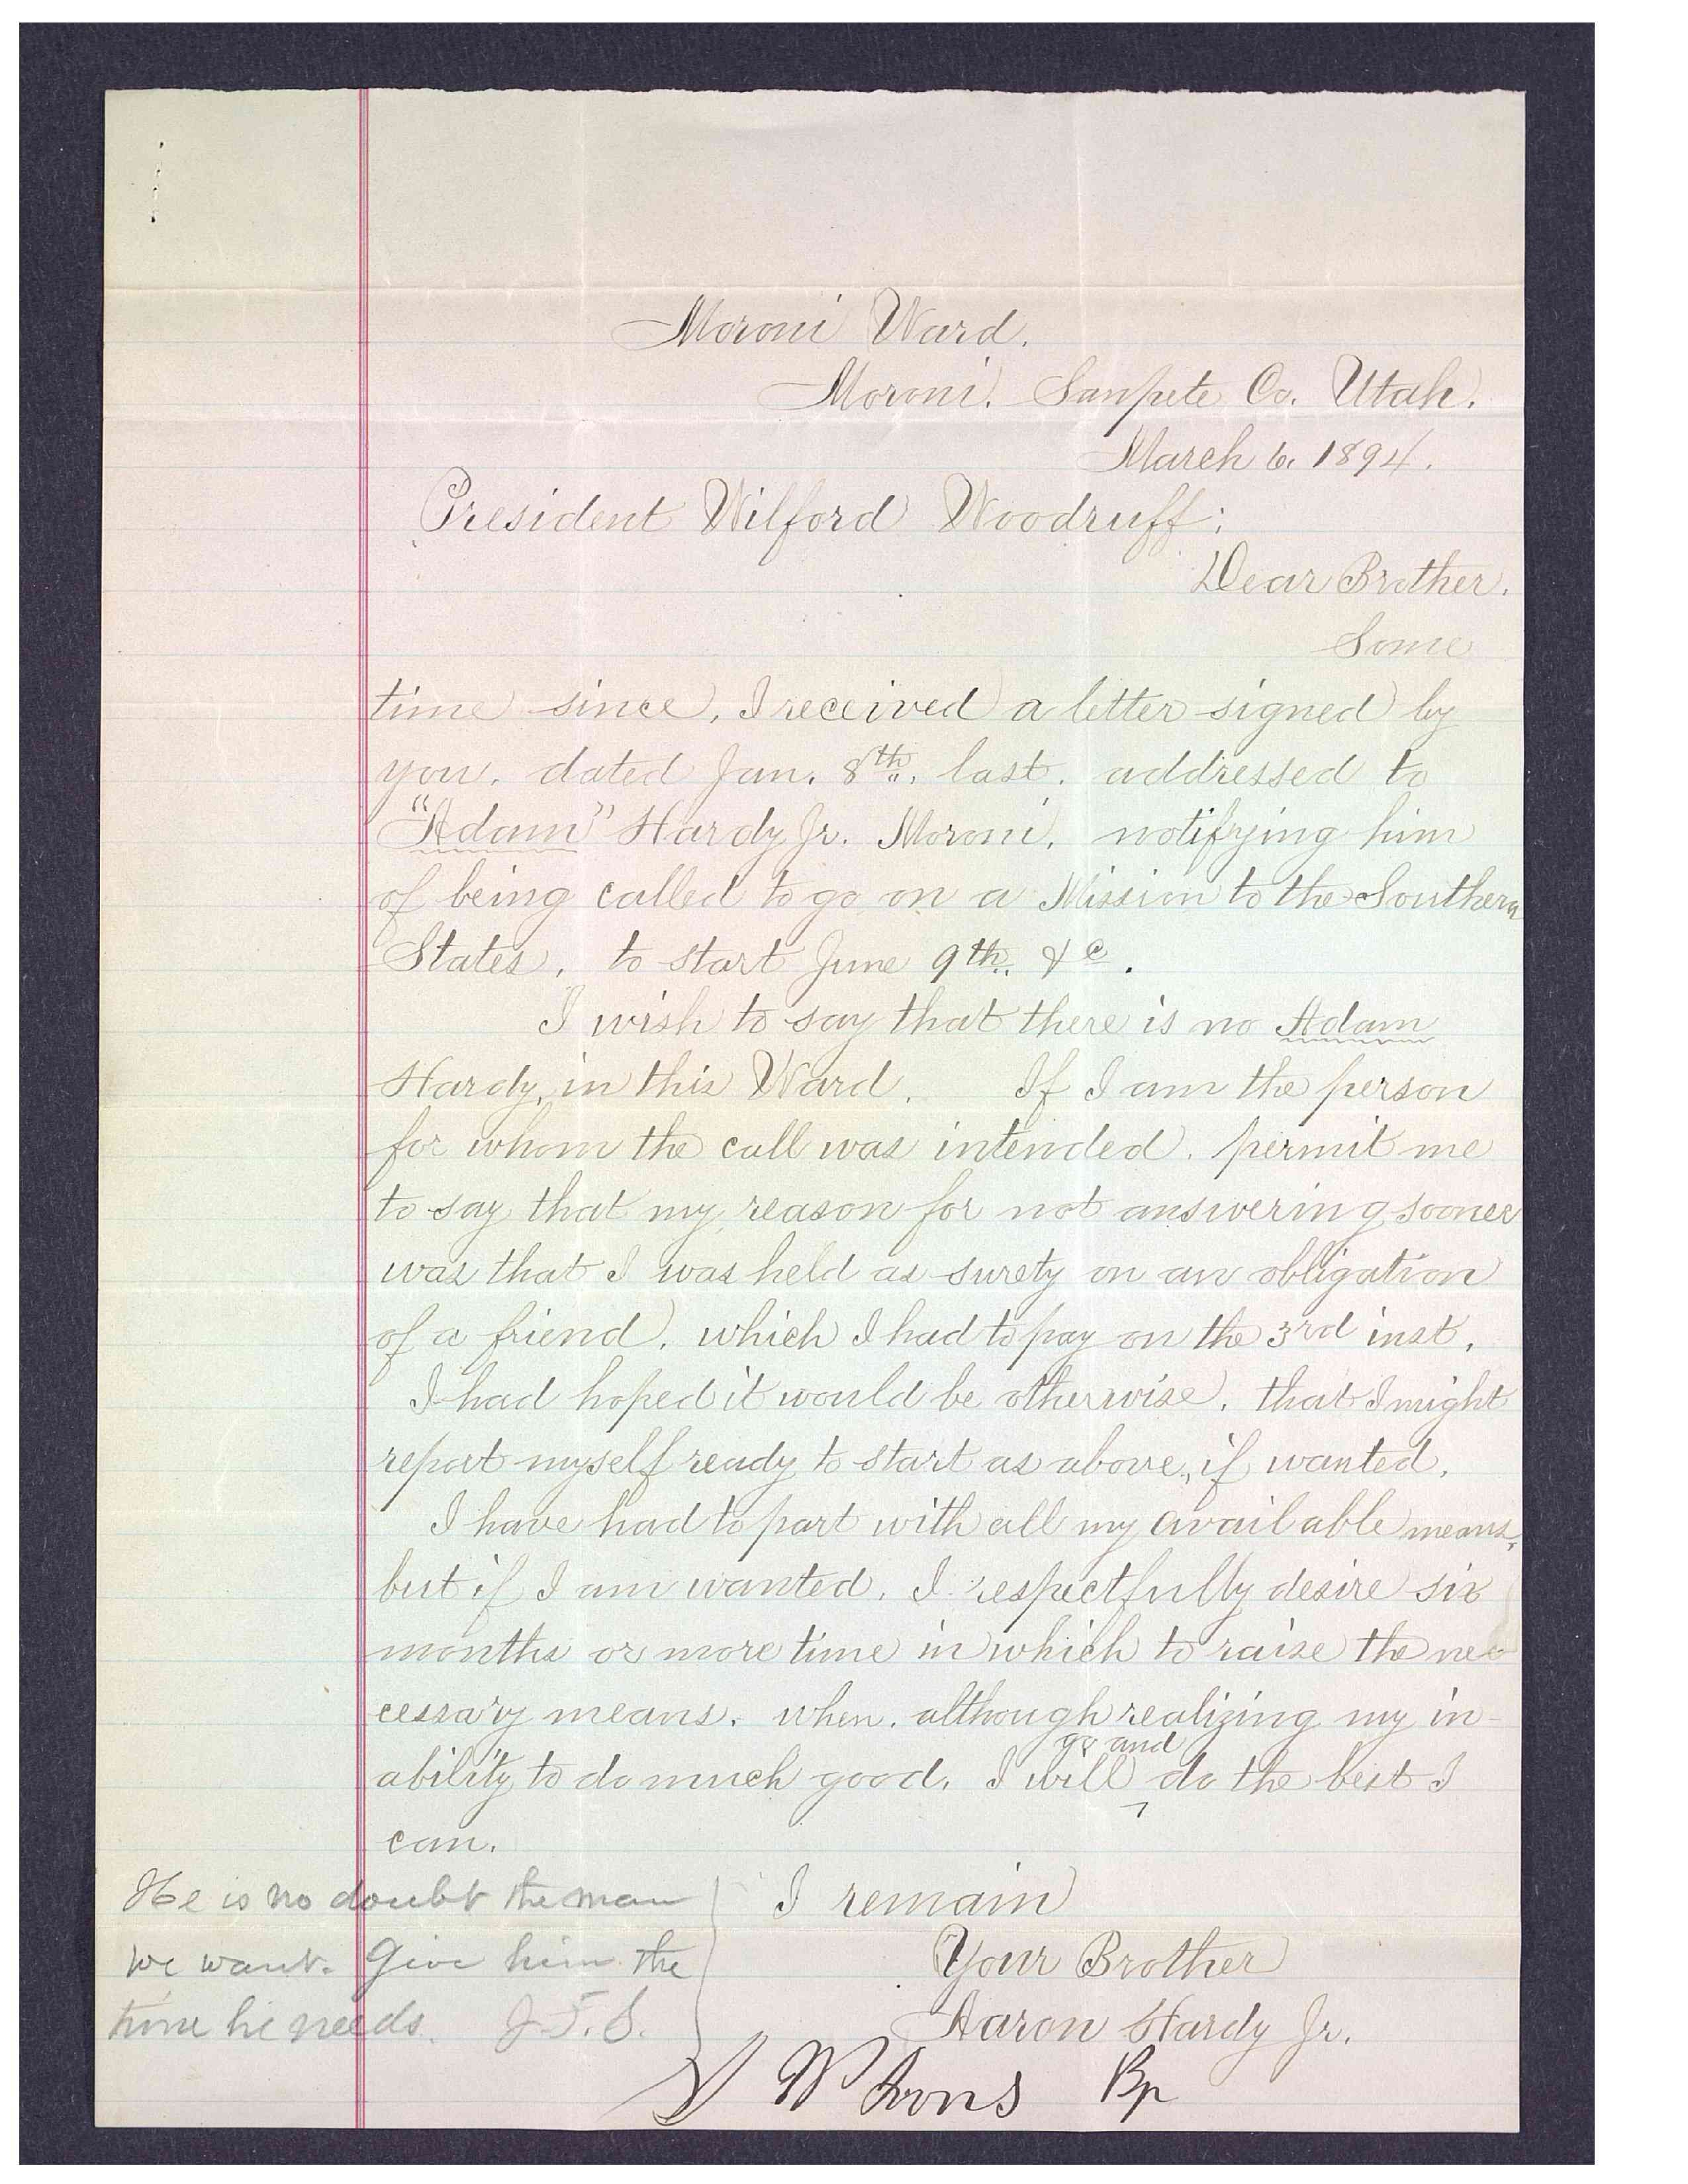 Moroni Ward.
Moroni. Sanpete Co. Utah.
March 6. 1894.
President Wilford Woodruff:
Dear Brother.
Some
time since, I received a letter signed by
you, dated Jan. 8th, last, addressed to
"Adam" Hardy Jr. Moroni, notifying him
of being called to go on a Mission to the Southern
States, to start June 9th. &c.
I wish to say that there is no Adam
Hardy, in this Ward. If I am the person
for whom the call was intended, permit me
to say that my reason for not answering sooner
was that I was held as surety on an obligation
of a friend, which I had to pay on the 3rd inst.
I had hoped it would be otherwise, that I might
report myself ready to start as above, if wanted.
I have had to part with all my available means,
but if I am wanted, I respectfully desire six
months or more time in which to raise the ne-
cessary means, when, although realizing my in-
ability to do much good, I will go and do the best I
can.
I remain
Your Brother
Aaron Hardy Jr.
He is no doubt the man
we want. Give him the
time he needs. J.F.S.
J W Irons Bp